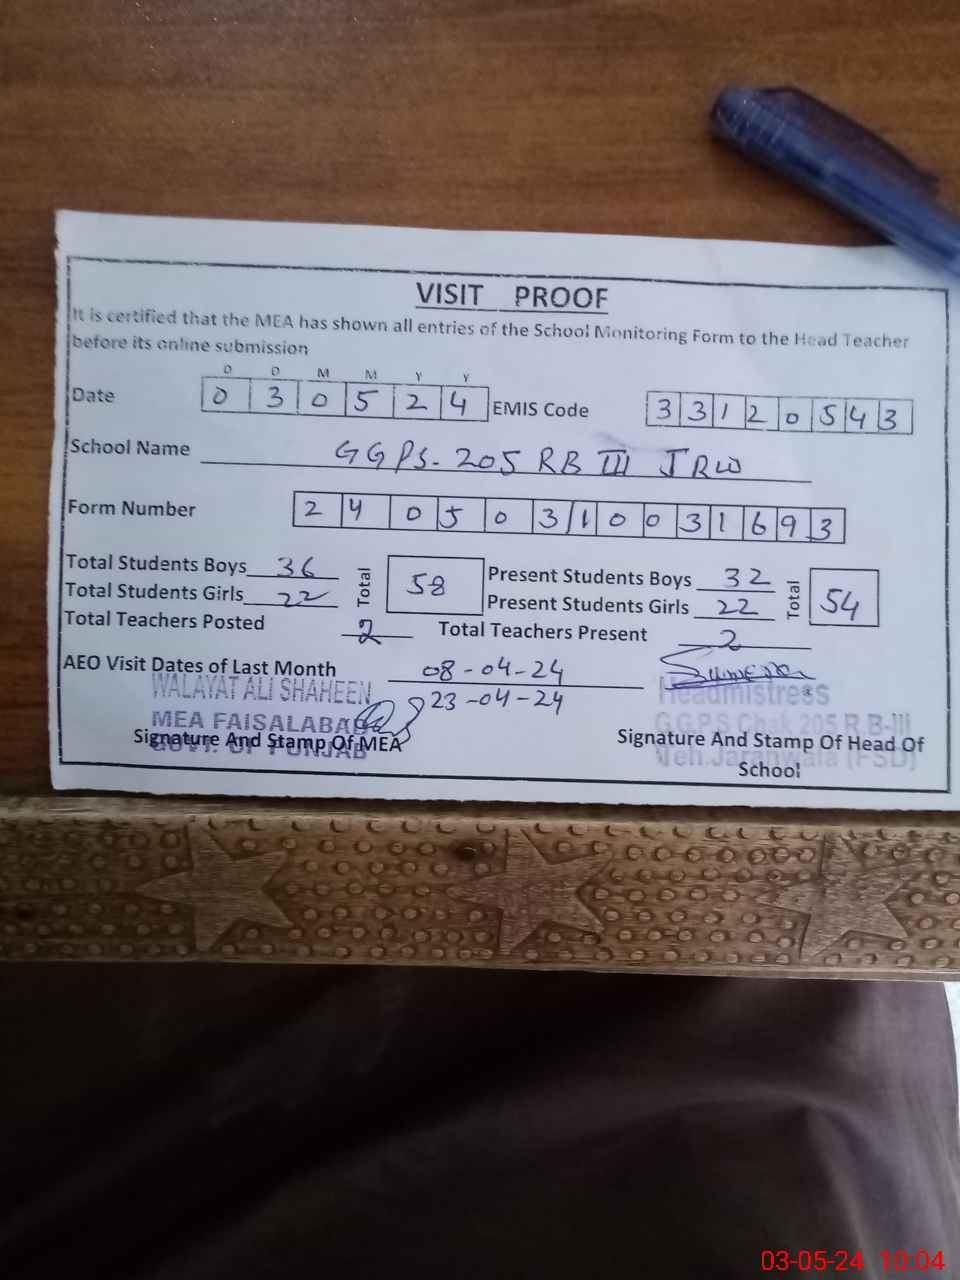 VISIT PROOF
It is certified that the MEA has shown all entries of the School Monitoring Form to the Head Teacher
before its online submission
D D M M Y Y
Date 0 3 0 5 2 4 EMIS Code 3 3 1 2 0 5 4 3
School Name GGPS. 205 RB III JRW
Form Number 2 4 0 5 0 3 1 0 0 3 1 6 9 3
Total Students Boys 36 Total 58 Present Students Boys 32 Total 54
Total Students Girls 22 Present Students Girls 22
Total Teachers Posted 2 Total Teachers Present 2
AEO Visit Dates of Last Month 08-04-24
23-04-24
WALAYAT ALI SHAHEEN
MEA FAISALABAD
GOVT. OF PUNJAB
Signature And Stamp Of MEA
Headmistress
G.G.P.S Chak 205 R.B-III
Teh. Jaranwala (FSD)
Signature And Stamp Of Head Of
School
03-05-24 10:04